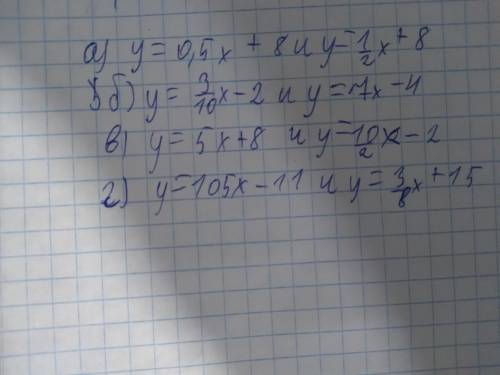 а) y = 0,5x + 8 и y = 1/2 x + 8
б) y = 3/10 x - 2 и y = 7x - 4
в) y = 5x + 8 и y = 10/2 x - 2
г) y = 105x - 11 и y = 3/8 x + 15